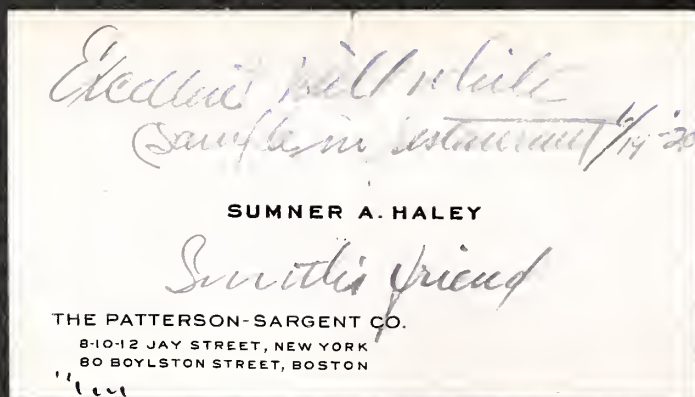 Excellent Mill white
Sample in restaurant 6/14-20
SUMNER A. HALEY
Smith's friend
THE PATTERSON-SARGENT CO.
8-10-12 JAY STREET, NEW YORK
80 BOYLSTON STREET, BOSTON